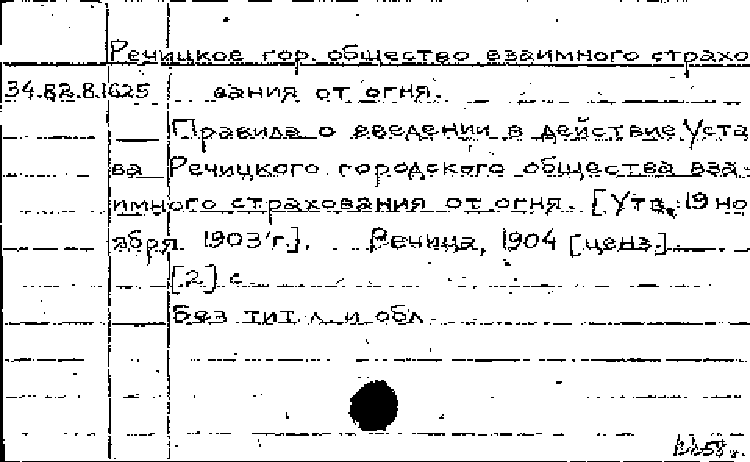 Речицкое гор. общество взаимного страхо
34.82.8.1625 вания от огня.
Правила о введении в действие Уста
ва Речицкого городского общества вза-
имного страхования от огня. [Утв. 19 но
ября 1903 г.]. Речица, 1904 [ценз.].
[2] с
Без тит. л. и обл.